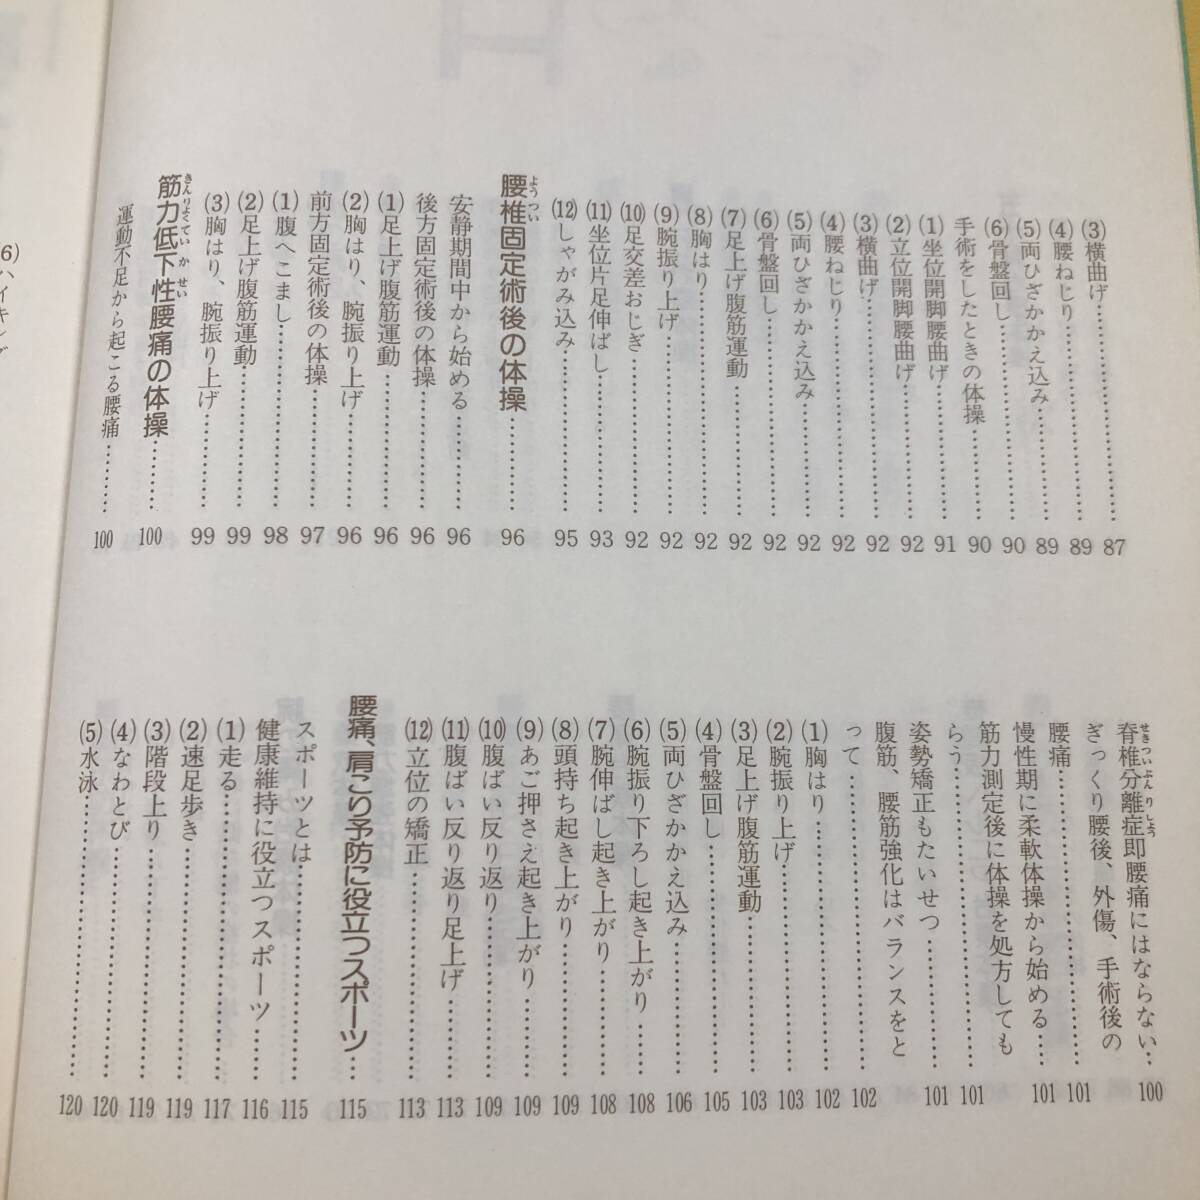 (3)横曲げ……87
(4)腰ねじり……89
(5)両ひざかかえ込み……89
(6)骨盤回し……90
手術をしたときの体操……90
(1)坐位開脚腰曲げ……91
(2)立位開脚腰曲げ……92
(3)横曲げ……92
(4)腰ねじり……92
(5)両ひざかかえ込み……92
(6)骨盤回し……92
(7)足上げ腹筋運動……92
(8)胸はり……92
(9)腕振り上げ……92
(10)足交差おじぎ……92
(11)坐位片足伸ばし……93
(12)しゃがみ込み……95
腰椎固定術後の体操……96
ようつい
安静期間中から始める……96
後方固定術後の体操……96
(1)足上げ腹筋運動……96
(2)胸はり、腕振り上げ……96
前方固定術後の体操……97
(1)腹へこまし……98
(2)足上げ腹筋運動……99
(3)胸はり、腕振り上げ……99
筋力低下性腰痛の体操……100
きんりょくていかせい
運動不足から起こる腰痛……100
脊椎分離症即腰痛にはならない…100
せきついぶんりしょう
ぎっくり腰後、外傷、手術後の
腰痛……101
慢性期に柔軟体操から始める……101
筋力測定後に体操を処方しても
らう……101
姿勢矯正もたいせつ……101
腹筋、腰筋強化はバランスをと
って……102
(1)胸はり……102
(2)腕振り上げ……103
(3)足上げ腹筋運動……103
(4)骨盤回し……105
(5)両ひざかかえ込み……106
(6)腕振り下ろし起き上がり……108
(7)腕伸ばし起き上がり……108
(8)頭持ち起き上がり……109
(9)あご押さえ起き上がり……109
(10)腹ばい反り返り……109
(11)腹ばい反り返り足上げ……113
(12)立位の矯正……113
腰痛、肩こり予防に役立つスポーツ…115
スポーツとは……115
健康維持に役立つスポーツ……116
(1)走る……117
(2)速足歩き……119
(3)階段上り……119
(4)なわとび……120
(5)水泳……120